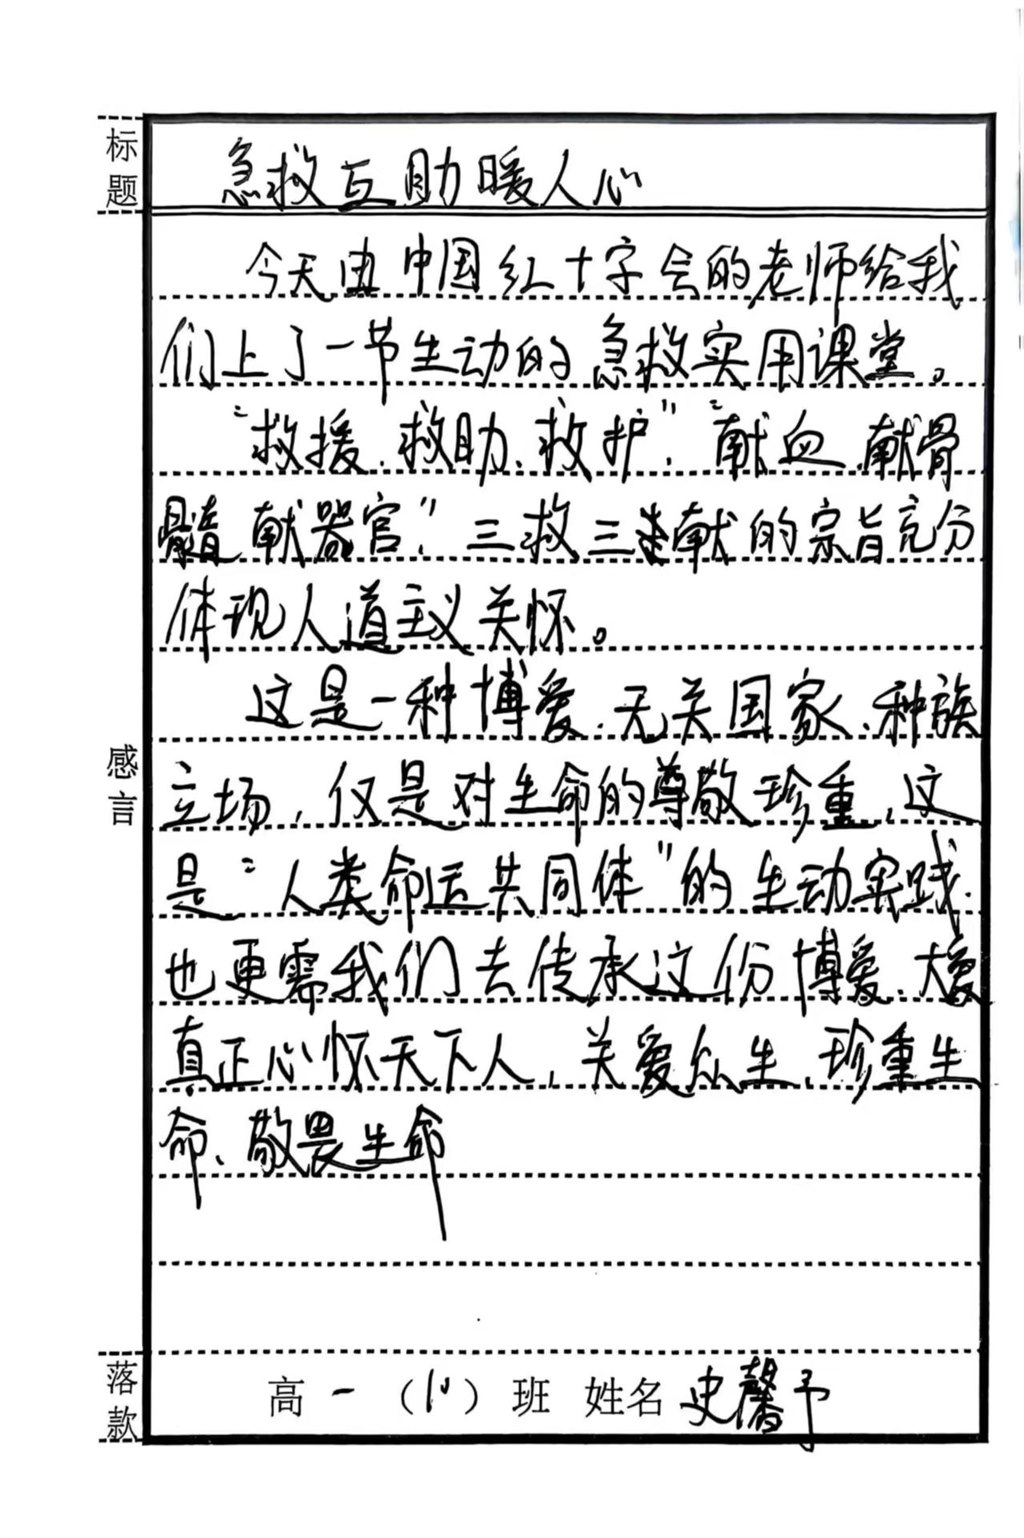 标题
急救互助暖人心
今天由中国红十字会的老师给我
们上了一节生动的急救实用课堂。
“救援、救助、救护”,“献血、献骨
髓、献器官”,三救三献的宗旨充分
体现人道主义关怀。
这是一种博爱,无关国家、种族
立场,仅是对生命的尊敬珍重,这
是“人类命运共同体”的生动实践.
也更需我们去传承这份博爱、大爱
真正心怀天下人,关爱众生,珍重生
命、敬畏生命
感言
落款
高一(10)班 姓名 史馨予